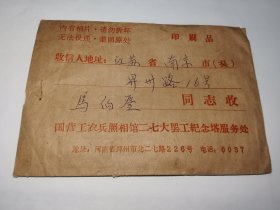 内有相片·请勿折坏
无法投递·退回原处
印刷品
收信人地址：江苏省南京市（县）
昇州路16号
馬伯群同志收
国营工农兵照相馆二七大罢工纪念塔服务处
地址：河南省郑州市北二七路226号 电话：6097